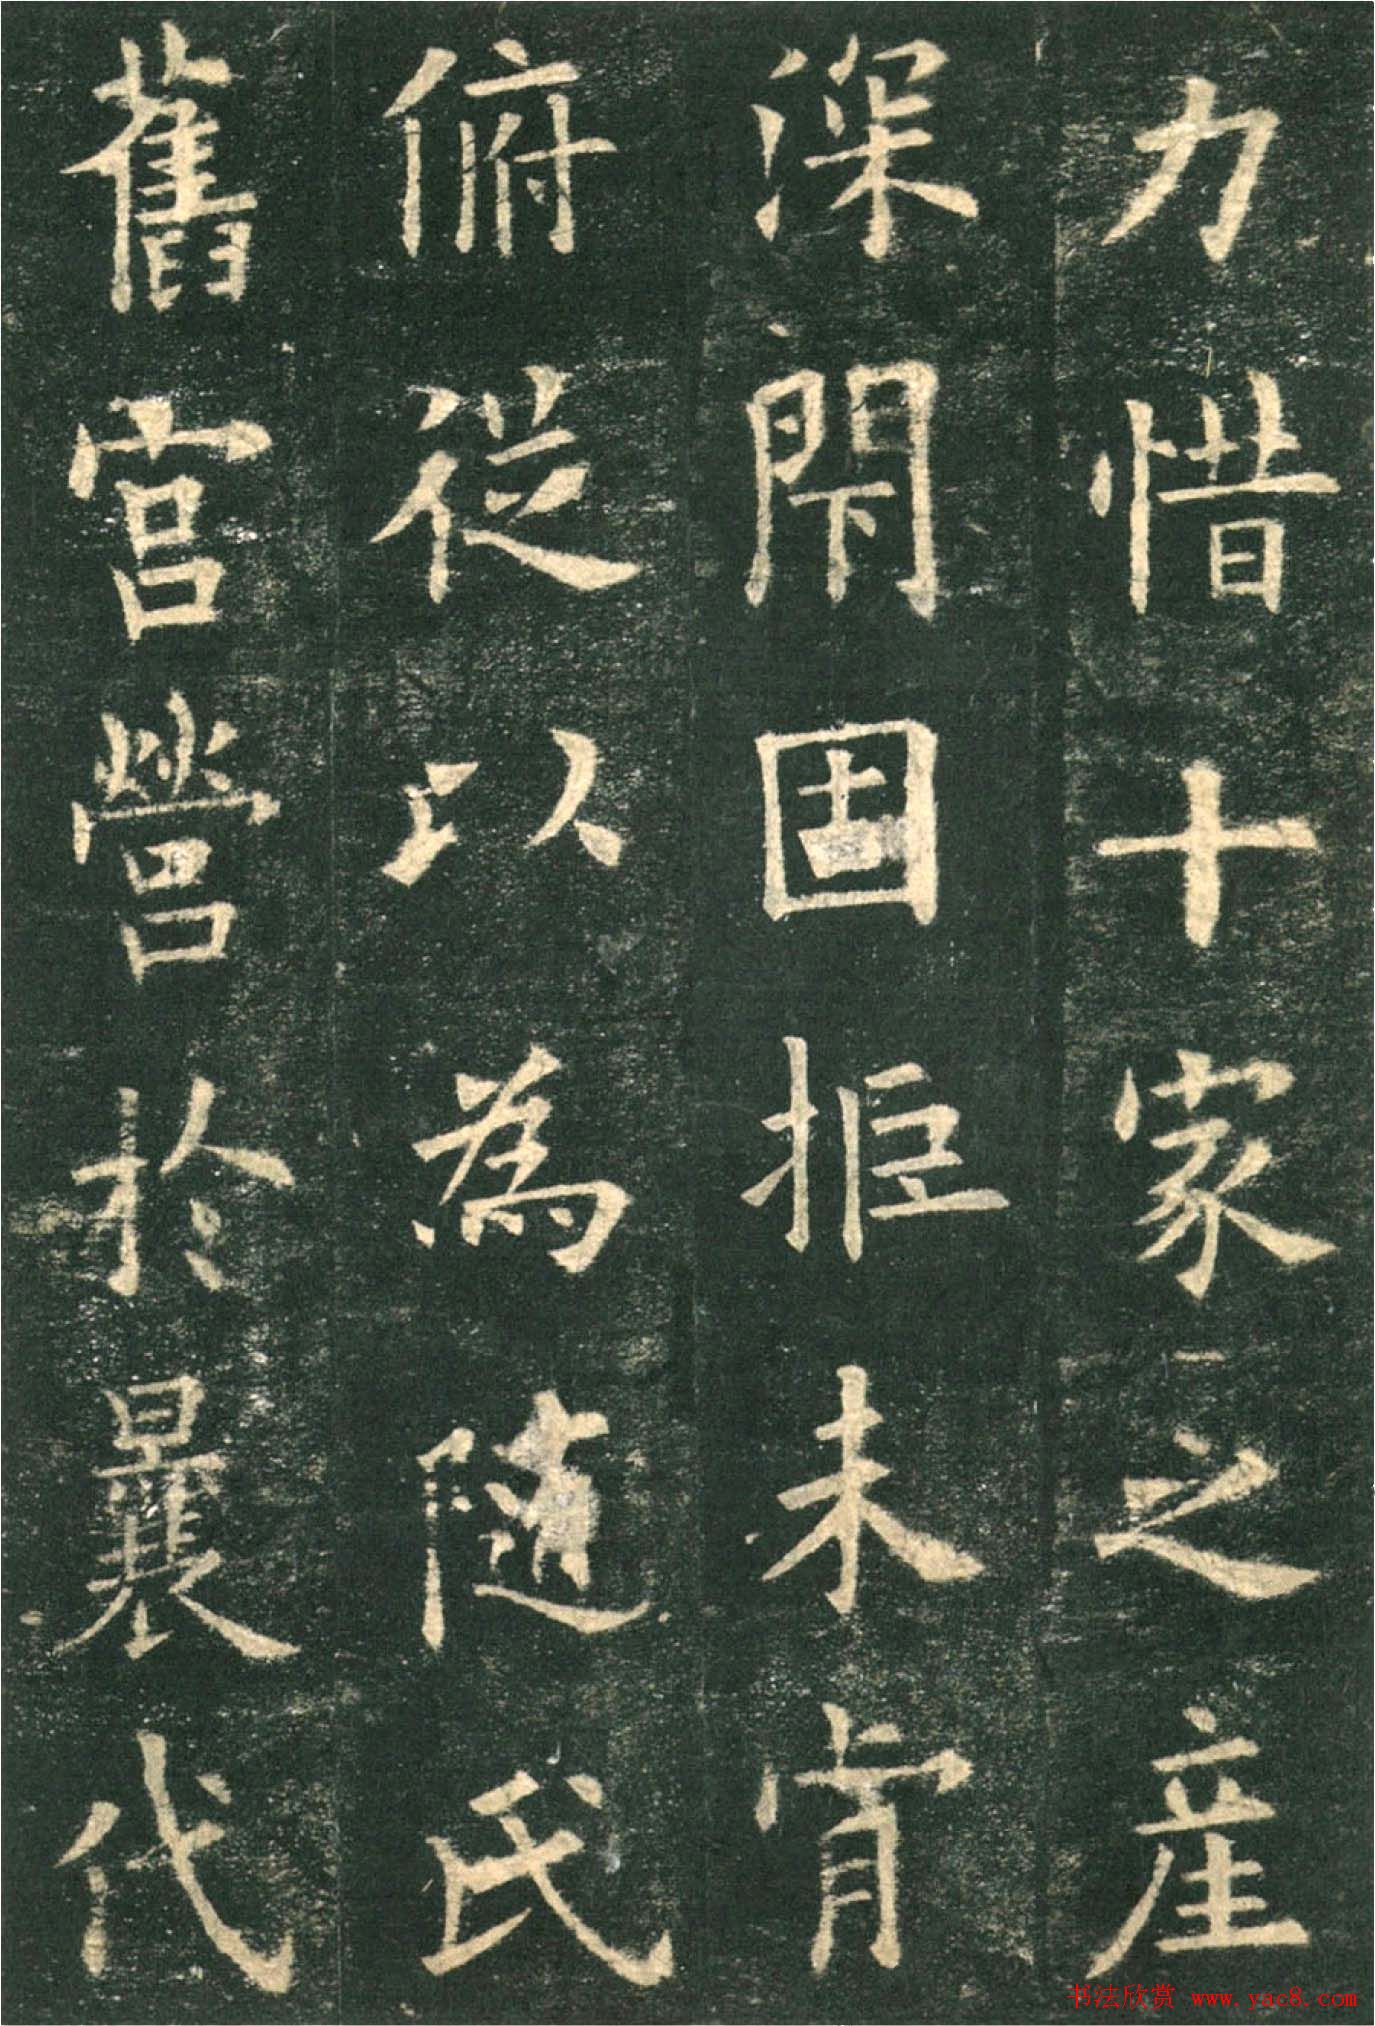 力惜十家之産
深閇固拒未肯
俯從以為隨氏
舊宮營於曩代
书法欣赏 www.yac8.com